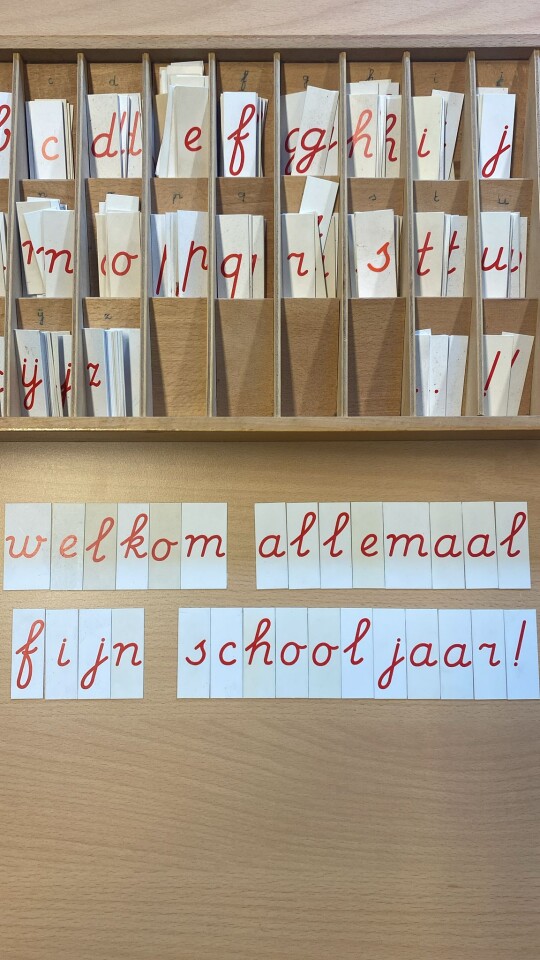 c d f g h i j
b c d d e f g g h h i j
n o p q s t u
n n o p q r s t t u
ij z
ij z . . ! !
welkom allemaal
fijn schooljaar!